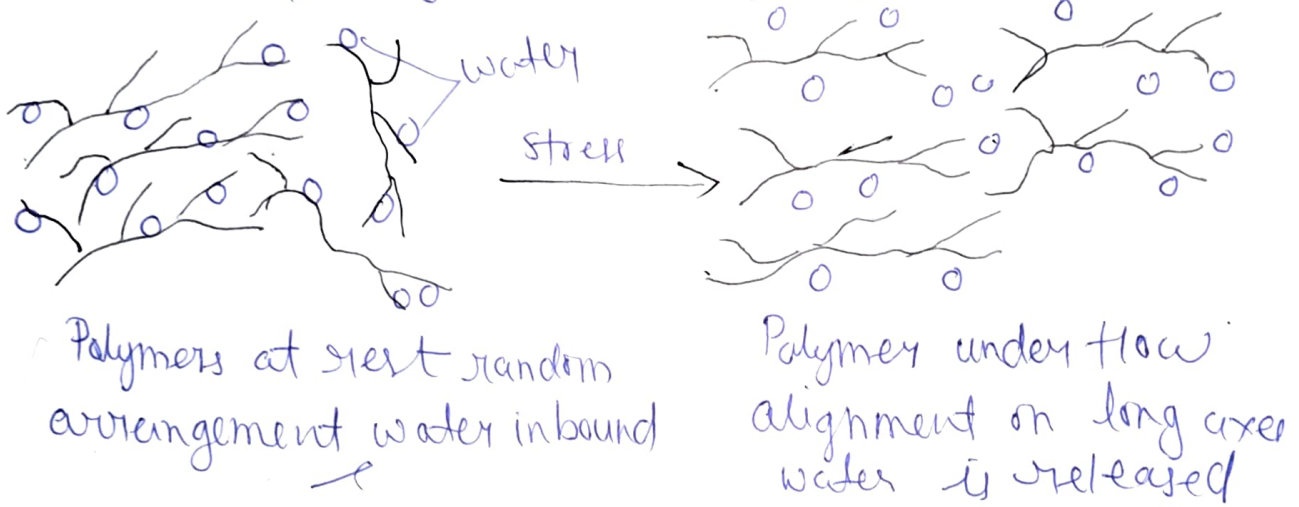 water
stress
Polymers at rest random
arrangement water inbound
Polymer under flow
alignment on long axes
water is released